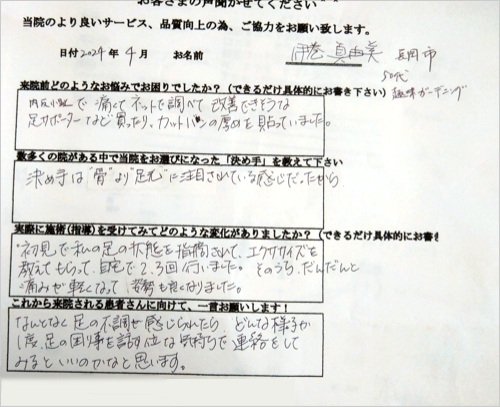 お客さまの声聞かせてください
当院のより良いサービス、品質向上の為、ご協力をお願い致します。
日付 2024 年 4 月 お名前 伊巻 真由美 長岡市
50代
来院前どのようなお悩みでお困りでしたか？（できるだけ具体的にお書き下さい） 趣味 ガーデニング
内反小趾で 痛くて ネットで調べて 改善できそうな
足サポーター など 買ったり、カットバンの厚めを貼っていました。
数多くの院がある中で当院をお選びになった「決め手」を教えて下さい
決め手は"骨"より"足元"に注目されている感じだったから
実際に施術(指導)を受けてみてどのような変化がありましたか？（できるだけ具体的にお書き
初見で私の足の状態を指摘されて、エクササイズを
教えてもらって、自宅で2,3回行いました。そのうち、だんだんと
痛みが軽くなって、姿勢も良くなりました。
これから来院される患者さんに向けて、一言お願いします！
なんとなく足の不調を感じられたら、どんな様子か
1度、足の困り事を話す位な気持ちで連絡をして
みるといいのかなと思います。